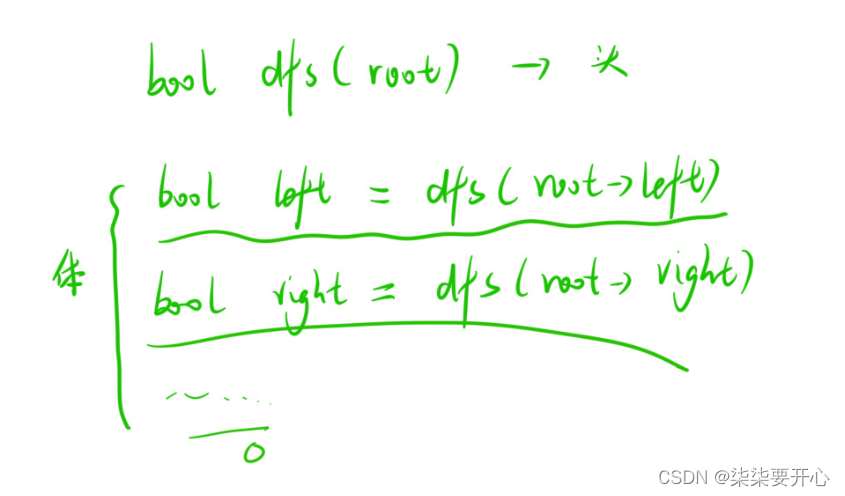 bool dfs(root) → 头
bool left = dfs(root->left)
体
bool right = dfs(root->right)
......
0
CSDN @柒柒要开心